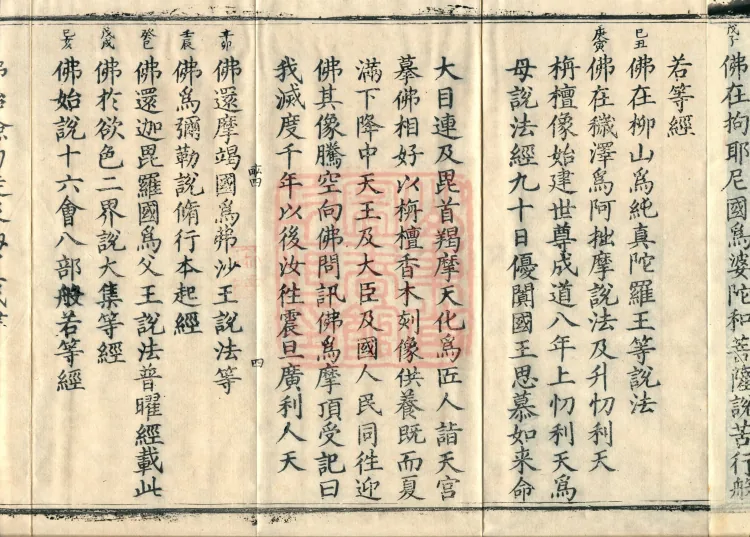 戊子 佛在拘耶尼國爲婆陀和菩薩說苦行般
若等經
己丑 佛在柳山爲純真陀羅王等說法
庚寅 佛在穢澤爲阿拙摩說法及升忉利天
栴檀像始建世尊成道八年上忉利天爲
母說法經九十日優闐國王思慕如来命
大目連及毘首羯摩天化爲匠人詣天宮
摹佛相好以栴檀香木刻像供養既而夏
滿下降中天王及大臣及國人民同徃迎
佛其像騰空向佛問訊佛爲摩頂受記曰
我滅度千年以後汝徃震旦廣利人天
四
辛卯 佛還摩竭國爲弗沙王說法等
壬辰 佛爲彌勒說脩行本起經
癸巳 佛還迦毘羅國爲父王說法普曜經載此
戊戌 佛於欲色二界說大集等經
己亥 佛始說十六會八部般若等經